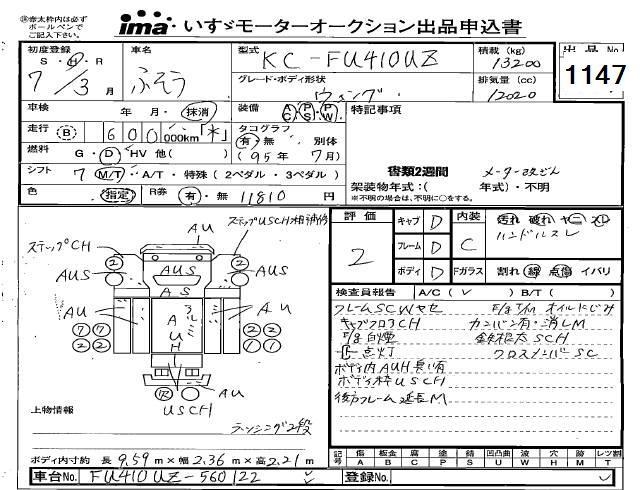 ※赤太枠内は必ず
ボールペンで
ご記入下さい。
ima いすゞモーターオークション出品申込書
初度登録 S・H・R 7/3月
車名 ふそう
型式 KC-FU410UZ
積載 (kg) 13200
出品No 1147
グレード・ボディ形状 ウィング
排気量 (cc) 12020
車検 年 月・抹消
装備 AC PS PW
特記事項
走行 B 600 000km「*」
タコグラフ 有・無 別体 (95年7月)
燃料 G・D・HV 他( )
書類2週間
メーター改ざん
シフト 7 M/T・A/T・特殊(2ペダル・3ペダル)
架装物年式:( 年式)・不明
※不明の場合は、不明に○をする。
色 指定 R券 有・無 11810 円
評価 2
キャブ D
フレーム D
ボディ D
内装 C
汚れ 破れ ヤニ スレ
ハンドルスレ
Fガラス 割れ 線 点傷 イバリ
ステップCH
AU
ステップUSCH相補修
② ②
AUS AUS AUS
AS
AU A AU
U
H
⑦⑦ ①①
②② ①①
R AU
USCH
検査員報告 A/C( ✓ ) B/T( )
フレームSCWヤセ
キャブフロアCH カンバン有・消LM
F/g白煙 鉄根太SCH
点灯 クロスメンバーSC
ボディ内AUH長い有
ボディ枠USCH
後方フレーム延長M
上物情報
ラッシング2段
ボディ内寸約 長9.59m×幅2.36m×高2.21m
記号 傷A 板金B 腐C 塗P 錆S 凹凸曲U 波W 穴H 跡M レツ割T
車台No. FU410UZ-560122
登録No.